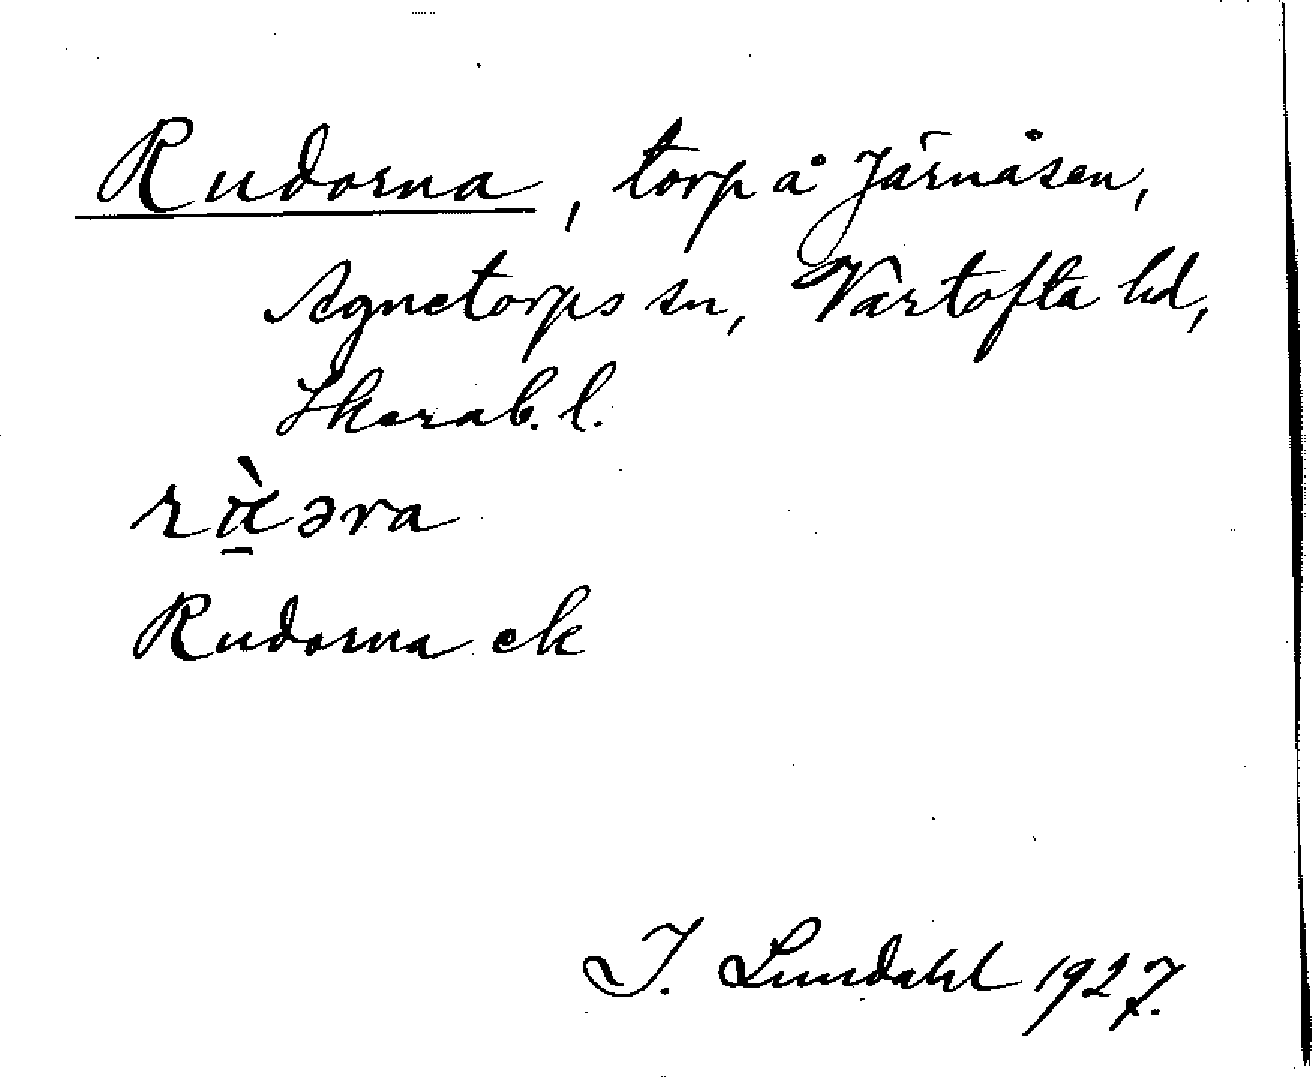 Rudorna, torp å Järnåsen,
Agnetorps sn, Vartofta hd,
Skarab. l.
Rudorna ek
I. Lundahl 1927.